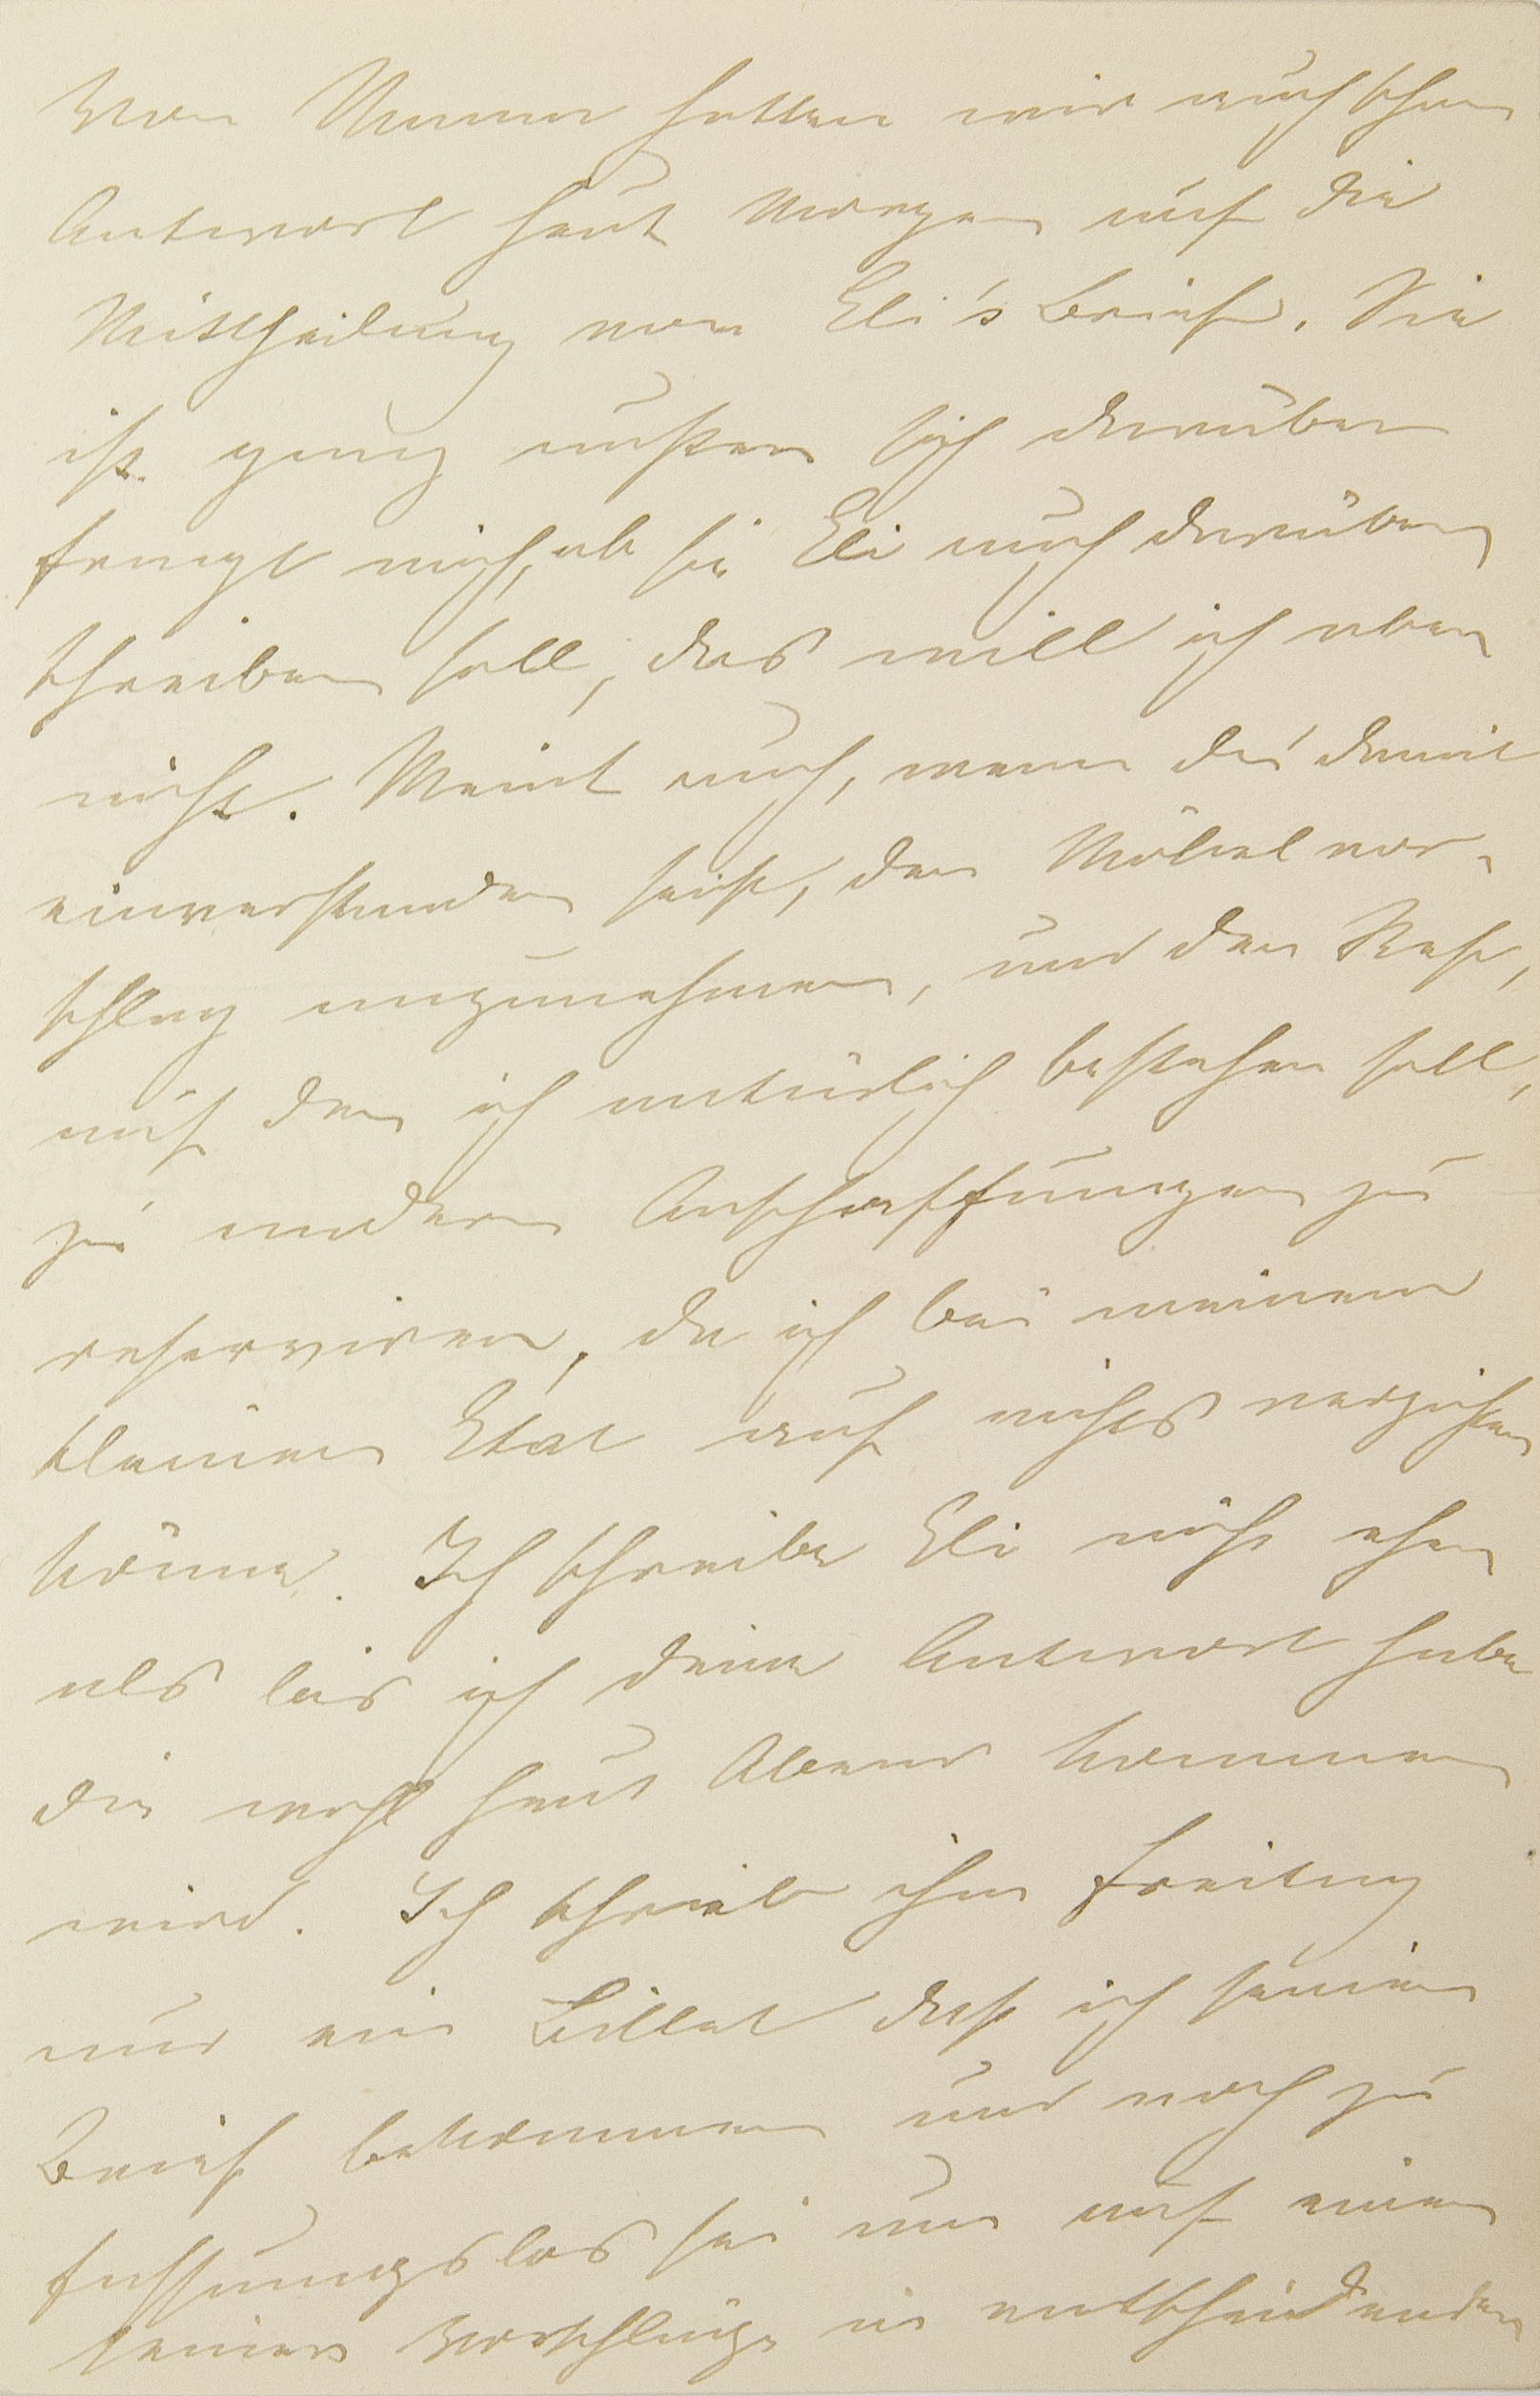 Von Mama hatten wir auch schon
Antwort heut Morgen auf die
Mittheilung von Eli's Briefe. Sie
ist ganz außer sich darüber
fragt mich, ob sie Eli auch darüber
schreiben soll, das will ich aber
nicht. Meint auch, wenn du damit
einverstanden seist, den Möbelvor-
schlag anzunehmen, und den Rest,
auf den ich natürlich bestehen soll,
zu andern Anschaffungen zu
reserviren, da ich bei meinem
kleinen Etat auf nichts verzichten
könne. Ich schreibe Eli nicht eher
als bis ich deine Antwort habe
die wohl heut Abend kommen
wird. Ich schrieb ihm Freitag
nur ein Billet daß ich seinen
Brief bekommen und noch zu
fassungslos sei um auf einen
seiner Vorschläge in entscheidender